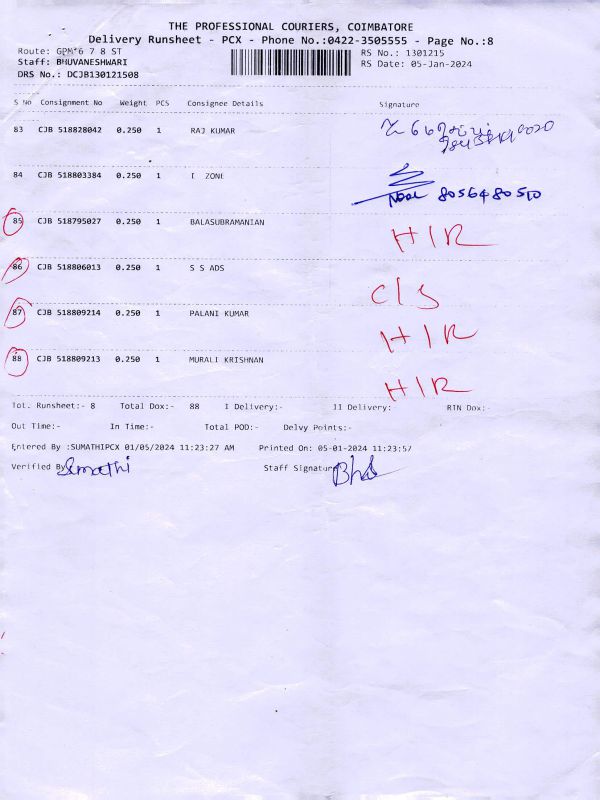 THE PROFESSIONAL COURIERS, COIMBATORE
Delivery Runsheet - PCX - Phone No.:0422-3505555 - Page No.:8
Route: GPM*6 7 8 ST RS No.: 1301215
Staff: BHUVANESHWARI RS Date: 05-Jan-2024
DRS No.: DCJB130121508
S No Consignment No Weight PCS Consignee Details Signature
83 CJB 518828042 0.250 1 RAJ KUMAR
84 CJB 518803384 0.250 1 I ZONE
8056480510
85 CJB 518795027 0.250 1 BALASUBRAMANIAN H/R
86 CJB 518806013 0.250 1 S S ADS C/S
87 CJB 518809214 0.250 1 PALANI KUMAR H/R
88 CJB 518809213 0.250 1 MURALI KRISHNAN H/R
Tot. Runsheet:- 8 Total Dox:- 88 I Delivery:- II Delivery:- RTN Dox:-
Out Time:- In Time:- Total POD:- Delvy Points:-
Entered By :SUMATHIPCX 01/05/2024 11:23:27 AM Printed On: 05-01-2024 11:23:57
Verified By Sumathi Staff Signature